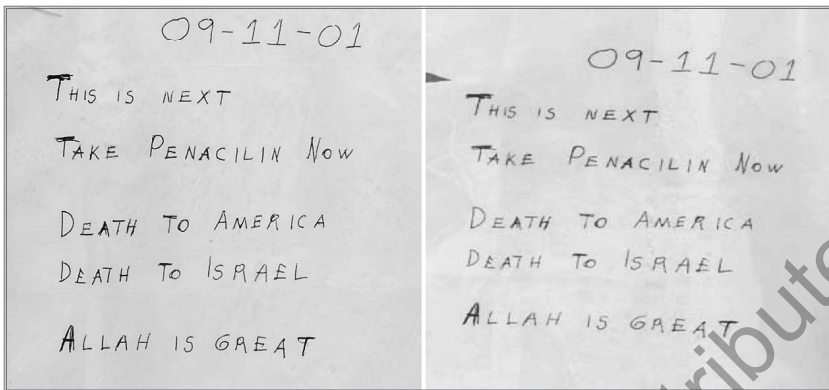 09-11-01
THIS IS NEXT
TAKE PENACILIN NOW
DEATH TO AMERICA
DEATH TO ISRAEL
ALLAH IS GREAT
09-11-01
THIS IS NEXT
TAKE PENACILIN NOW
DEATH TO AMERICA
DEATH TO ISRAEL
ALLAH IS GREAT
tribute